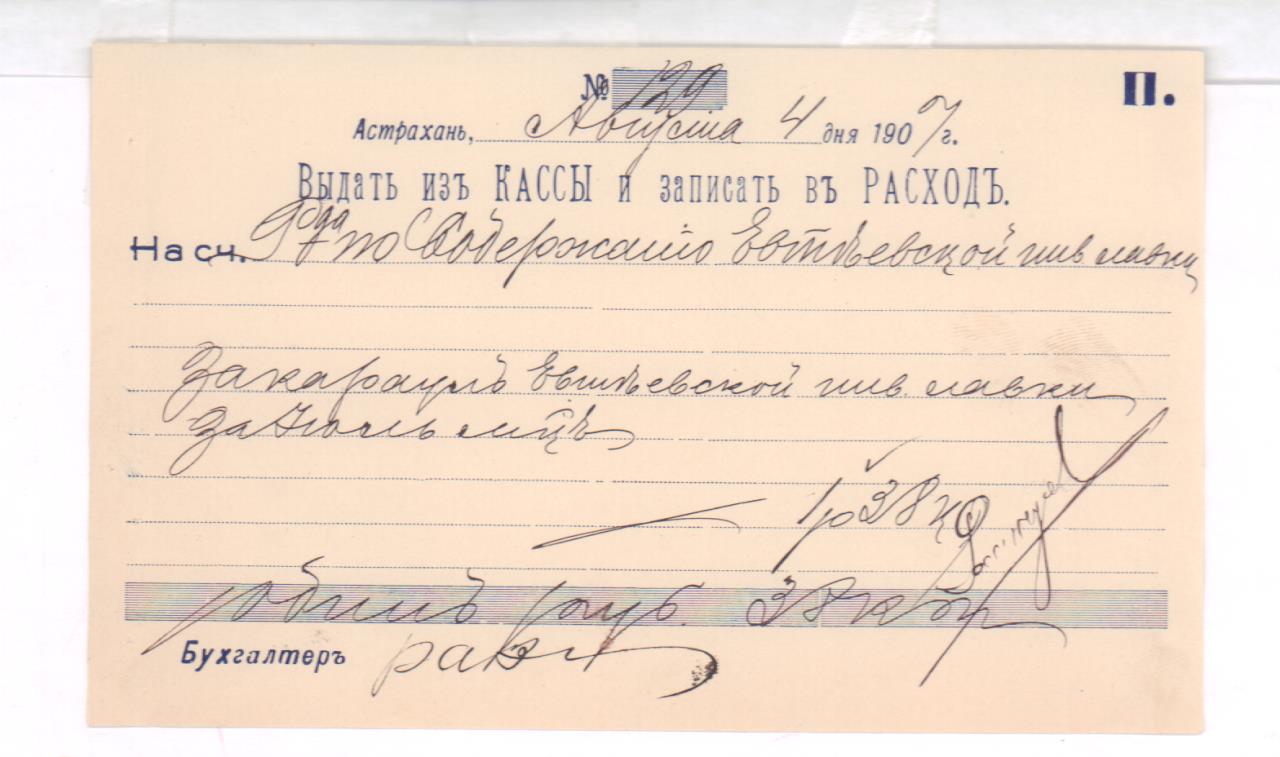 П.
№ 129
Астрахань, Августа 4 дня 1907 г.
Выдать изъ КАССЫ и записать въ РАСХОДЪ.
На сч. по Содержанію Евтѣевской пив лавки
За караулъ Евтѣевской пив. лавки
за Іюль мцъ
1р 38 к
Одинъ руб. 38 коп
Бухгалтеръ